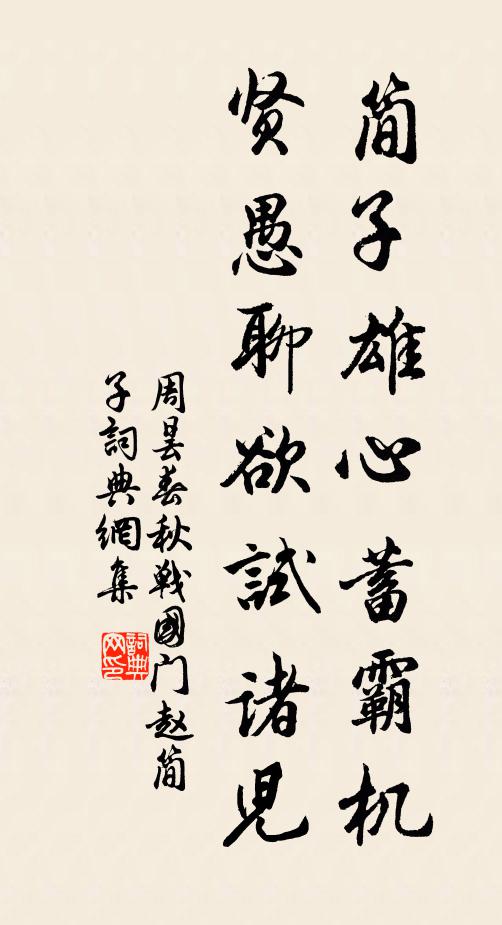 简子雄心蓄霸机
贤愚聊欲试诸児
周昙春秋战国门赵简
子词典網集
詞典网印